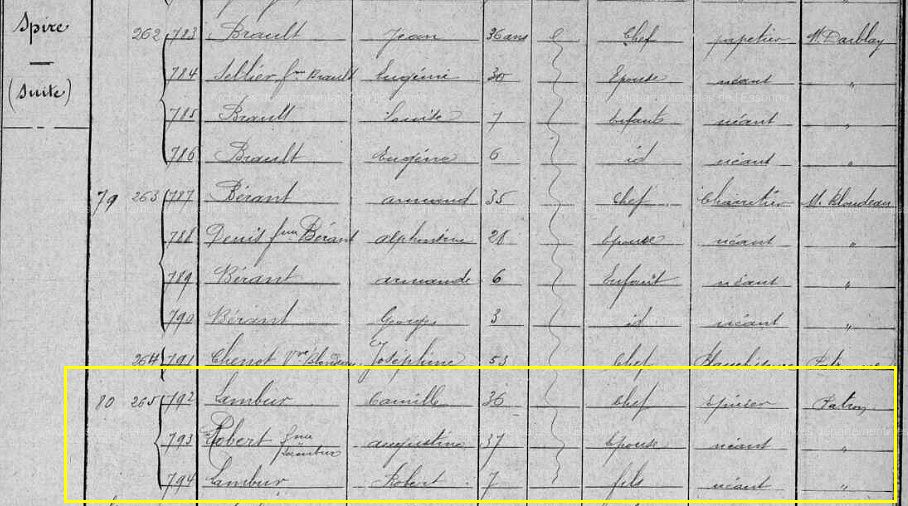 Spire
—
(Suite)
262 783 Brault Jean 36 ans Chef papetier M. Darblay
784 Sellier fme Brault Eugénie 30 Epouse néant "
785 Brault Louise 7 Enfants néant "
786 Brault Eugénie 6 id néant "
79 263 787 Bérant armand 35 Chef Charretier
788 Denis fme Bérant alphonsine 28 Epouse néant "
789 Bérant armande 6 Enfant néant "
790 Bérant Georges 3 id néant "
264 791 Chenot Vve Joséphine 53 Chef
80 265 792 Lambur Camille 36 Chef épicier Patron
793 Robert fme Lambur augustine 37 Epouse néant "
794 Lambur Robert 7 fils néant "